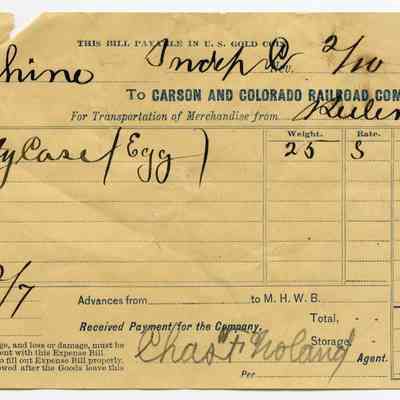 THIS BILL PAYABLE IN U. S. GOLD COIN
hine Indep 2/10
To CARSON AND COLORADO RAILROAD COM
For Transportation of Merchandise from Keeler
Weight. Rate.
ty Case (Egg) 25 S
/7
Advances from to M. H. W. B.
Received Payment for the Company, Total,
Storage,
Chas F. Noland Agent.
Per
ge, and loss or damage, must be
ent with this Expense Bill.
to fill out Expense Bill properly.
owed after the Goods leave this